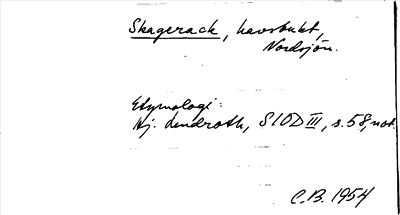 Skagerack, havsbukt,
Nordsjön.
Etymologi:
Hj. Lindroth, SIOD III, s. 58, not.
C.B. 1954